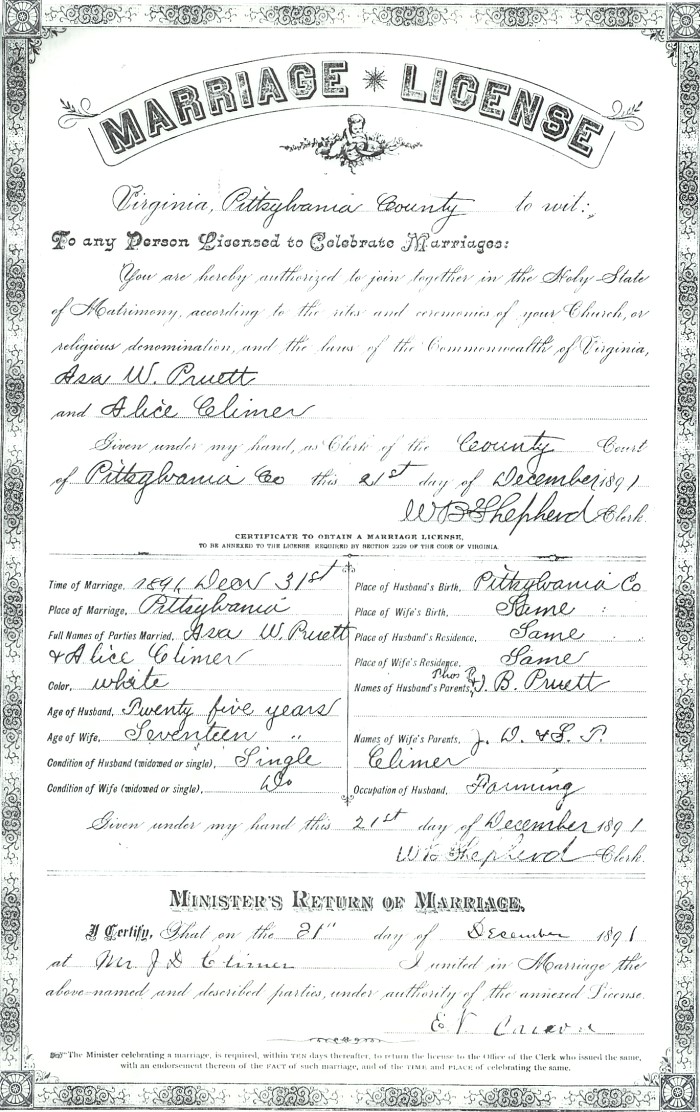 MARRIAGE LICENSE
Virginia, Pittsylvania County to wit:
To any Person Licensed to Celebrate Marriages:
You are hereby authorized to join together in the Holy State
of Matrimony, according to the rites and ceremonies of your Church, or
religious denomination, and the laws of the Commonwealth of Virginia,
Asa W. Pruett
and Alice Climer
Given under my hand, as Clerk of the County Court
of Pittsylvania Co this 21st day of December 1891
W B Shepherd Clerk.
CERTIFICATE TO OBTAIN A MARRIAGE LICENSE,
TO BE ANNEXED TO THE LICENSE REQUIRED BY SECTION 2229 OF THE CODE OF VIRGINIA.
Time of Marriage, 1891, Decr 31st
Place of Marriage, Pittsylvania
Full Names of Parties Married, Asa W. Pruett
& Alice Climer
Color, white
Age of Husband, Twenty five years
Age of Wife, Seventeen "
Condition of Husband (widowed or single), Single
Condition of Wife (widowed or single), Do
Place of Husband's Birth, Pittsylvania Co
Place of Wife's Birth, Same
Place of Husband's Residence, Same
Place of Wife's Residence, Same
Names of Husband's Parents, B. Pruett
Names of Wife's Parents, J. D. & S. P.
Climer
Occupation of Husband, Farming
Given under my hand this 21st day of December 1891
W B Shepherd Clerk.
MINISTER'S RETURN OF MARRIAGE.
I Certify, That on the 31" day of December 1891
at Mr J D Climer I united in Marriage the
above-named and described parties, under authority of the annexed License.
The Minister celebrating a marriage, is required, within TEN days thereafter, to return the license to the Office of the Clerk who issued the same,
with an endorsement thereon of the FACT of such marriage, and of the TIME and PLACE of celebrating the same.